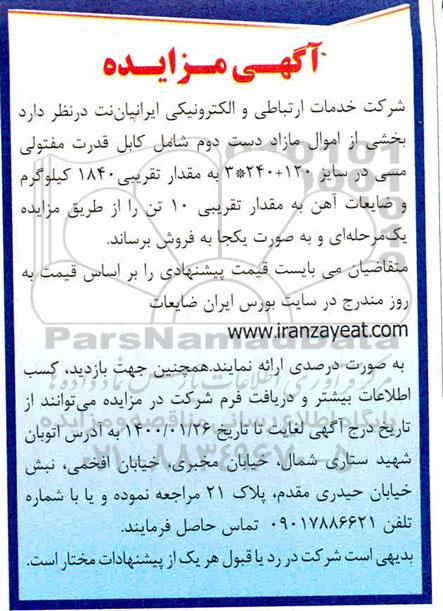 آگهی مزایده
شرکت خدمات ارتباطی و الکترونیکی ایرانیان‌نت درنظر دارد
بخشی از اموال مازاد دست دوم شامل کابل قدرت مفتولی
مسی در سایز ۱۲۰+۲۴۰*۳ به مقدار تقریبی ۱۸۴۰ کیلوگرم
و ضایعات آهن به مقدار تقریبی ۱۰ تن را از طریق مزایده
یک‌مرحله‌ای و به صورت یکجا به فروش برساند.
متقاضیان می بایست قیمت پیشنهادی را بر اساس قیمت به
روز مندرج در سایت بورس ایران ضایعات
www.iranzayeat.com
به صورت درصدی ارائه نمایند.همچنین جهت بازدید، کسب
اطلاعات بیشتر و دریافت فرم شرکت در مزایده می‌توانند از
تاریخ درج آگهی لغایت تا تاریخ ۱۴۰۰/۰۱/۲۶ به آدرس اتوبان
شهید ستاری شمال، خیابان مخبری، خیابان افخمی، نبش
خیابان حیدری مقدم، پلاک ۲۱ مراجعه نموده و یا با شماره
تلفن ۰۹۰۱۷۸۸۶۶۲۱ تماس حاصل فرمایند.
بدیهی است شرکت در رد یا قبول هر یک از پیشنهادات مختار است.
ParsNamadData